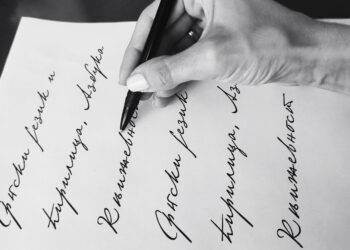 Српски језик и
Ћирилица, Азбука
Књижевност
Српски језик
Ћирилица, Аз
Књижевност